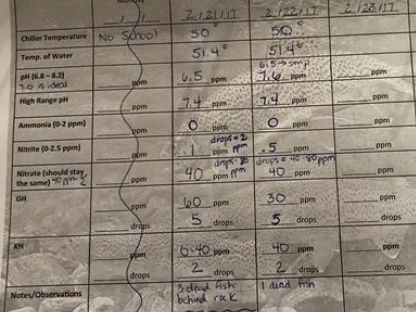 Monday
__/__/__ 2/21/17 2/22/17 2/23/17
Chiller Temperature No School 50° 50°
Temp. of Water 51.4° 51.4°
pH (6.8 – 8.2) ppm 6.5 ppm 7.6 ppm ppm
7.0 is ideal
High Range pH ppm 7.4 ppm 7.4 ppm ppm
Ammonia (0-2 ppm) ppm 0 ppm 0 ppm ppm
drops = 2
Nitrite (0-2.5 ppm) ppm .1 ppm ppm .5 ppm ppm
drops = 80 ppm drops = 40-80 ppm
Nitrate (should stay the same) ppm 40 ppm 40 ppm ppm
GH ppm 60 ppm 30 ppm ppm
drops 5 drops 5 drops drops
KH ppm 0-40 ppm 40 ppm ppm
drops 2 drops 2 drops drops
Notes/Observations 3 dead fish behind rock 1 dead fish